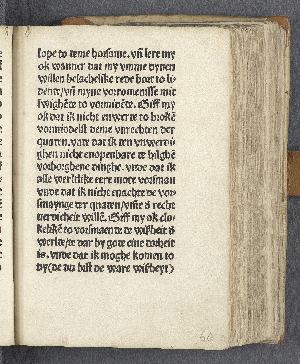 lope to teme horsame. vñ lere my
ok wanner dat my vmme dynen
willen belachelike rede bort to li-
dente/vñ myne vorromenisse mit
swighēte to vormidēte. Giff my
ok dat ik nicht enwerte to brokē
vormiddelst deme vnrechten der
quaten. vnde dat ik ten vnwerdi-
ghen nicht enopenbare te hilghē
vorborghene dinghe. vnde dat ik
alle werltlike eere mote vorsman
vnde dat ik nicht enachte de vor-
smaynge der quaten/vmme d recht
verdicheit willē. Giff my ok clo-
kelikē to vorsmaente de wißheit d
werlte/te dar by gote eine dorheit
is. vnde dat ik moghe komen to
dy(de du bist de ware wißheyt)
60